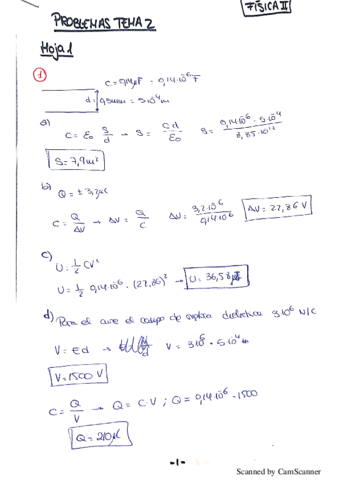 FÍSICA II
PROBLEMAS TEMA 2
Hoja 1
1
C = 0,14 μF = 0,14·10⁻⁶ F
d = 0,5mm = 5·10⁻⁴ m
a)
C = ε₀ S/d → S = Cd/ε₀ S = 0,14·10⁻⁶ · 5·10⁻⁴ / 8,85·10⁻¹²
S = 7,9 m²
b)
Q = ± 3,2 μC
C = Q/ΔV → ΔV = Q/C ΔV = 3,2·10⁻⁶ / 0,14·10⁻⁶ ΔV = 22,86 V
c)
U = 1/2 CV²
U = 1/2 0,14·10⁻⁶ · (22,86)² → U = 36,58 μJ
d) Para el aire el campo de ruptura dieléctrica 3·10⁶ N/C
V = Ed → V = 3·10⁶ · 5·10⁻⁴ m
V = 1500 V
C = Q/V → Q = C·V ; Q = 0,14·10⁻⁶ · 1500
Q = 210 μC
-1-
Scanned by CamScanner